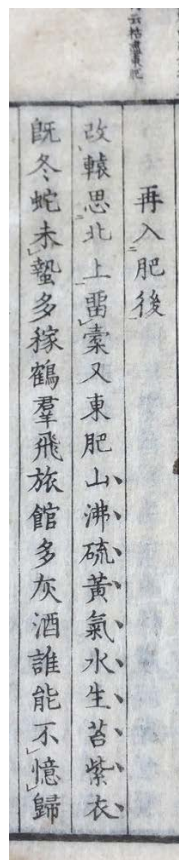 再入肥後
改轅思北上留橐又東肥山沸硫黃氣水生苔紫衣
既冬蛇未蟄多稼鶴羣飛旅館多灰酒誰能不憶歸